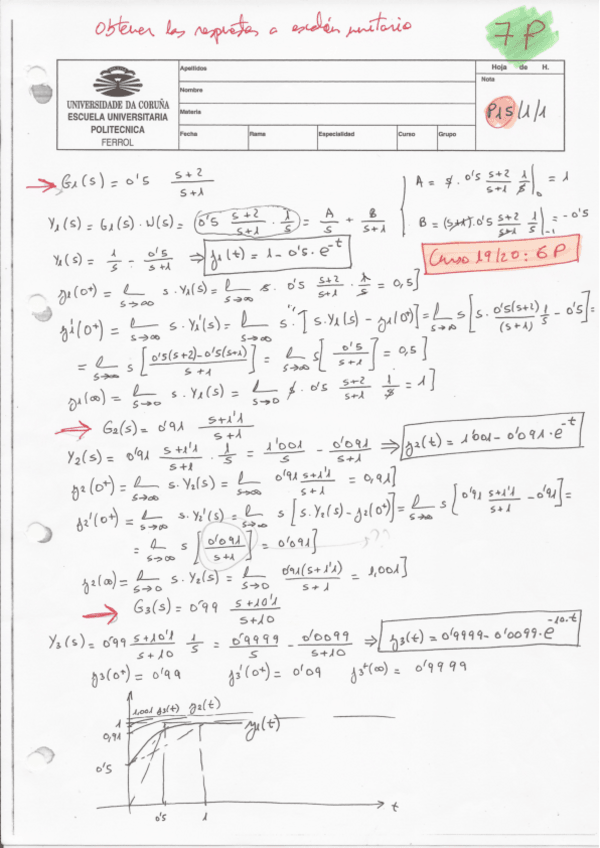 Obtener las respuestas a escalón unitario
7P
Apellidos
Hoja de H.
Nombre
Nota
UNIVERSIDADE DA CORUÑA
ESCUELA UNIVERSITARIA
POLITECNICA
FERROL
Materia
P15/1/1
Fecha Rama Especialidad Curso Grupo
→ G1(s) = 0'5 (s+2)/(s+1)
A = s · 0'5 (s+2)/(s+1) 1/s |0 = 1
Y1(s) = G1(s) · U(s) = 0'5 (s+2)/(s+1) · 1/s = A/s + B/(s+1)
B = (s+1) · 0'5 (s+2)/(s+1) 1/s |-1 = -0'5
Y1(s) = 1/s - 0'5/(s+1) ⇒ y1(t) = 1 - 0'5 · e^-t
Curso 19/20: 6P
y1(0+) = lim s→∞ s · Y1(s) = lim s→∞ s · 0'5 (s+2)/(s+1) · 1/s = 0,5]
y1'(0+) = lim s→∞ s · Y1'(s) = lim s→∞ s · [s · Y1(s) - y1(0+)] = lim s→∞ s [s · 0'5(s+2)/(s+1) 1/s - 0'5] =
= lim s→∞ s [(0'5(s+2) - 0'5(s+1))/(s+1)] = lim s→∞ s [0'5/(s+1)] = 0,5]
y1(∞) = lim s→0 s · Y1(s) = lim s→0 s · 0'5 (s+2)/(s+1) 1/s = 1]
→ G2(s) = 0'91 (s+1'1)/(s+1)
Y2(s) = 0'91 (s+1'1)/(s+1) · 1/s = 1'001/s - 0'091/(s+1) ⇒ y2(t) = 1'001 - 0'091 · e^-t
y2(0+) = lim s→∞ s · Y2(s) = lim s→∞ 0'91 (s+1'1)/(s+1) = 0,91]
y2'(0+) = lim s→∞ s · Y2'(s) = lim s→∞ s [s · Y2(s) - y2(0+)] = lim s→∞ s [0'91 (s+1'1)/(s+1) - 0'91] =
= lim s→∞ s [0'091/(s+1)] = 0'091] ??
y2(∞) = lim s→0 s · Y2(s) = lim s→0 0'91(s+1'1)/(s+1) = 1,001]
→ G3(s) = 0'99 (s+10'1)/(s+10)
Y3(s) = 0'99 (s+10'1)/(s+10) 1/s = 0'9999/s - 0'0099/(s+10) ⇒ y3(t) = 0'9999 - 0'0099 · e^-10·t
y3(0+) = 0'99 y3'(0+) = 0'09 y3+(∞) = 0'9999
1,001 y3(t) y2(t)
1
0,91
y1(t)
0'5
t
0'5 1